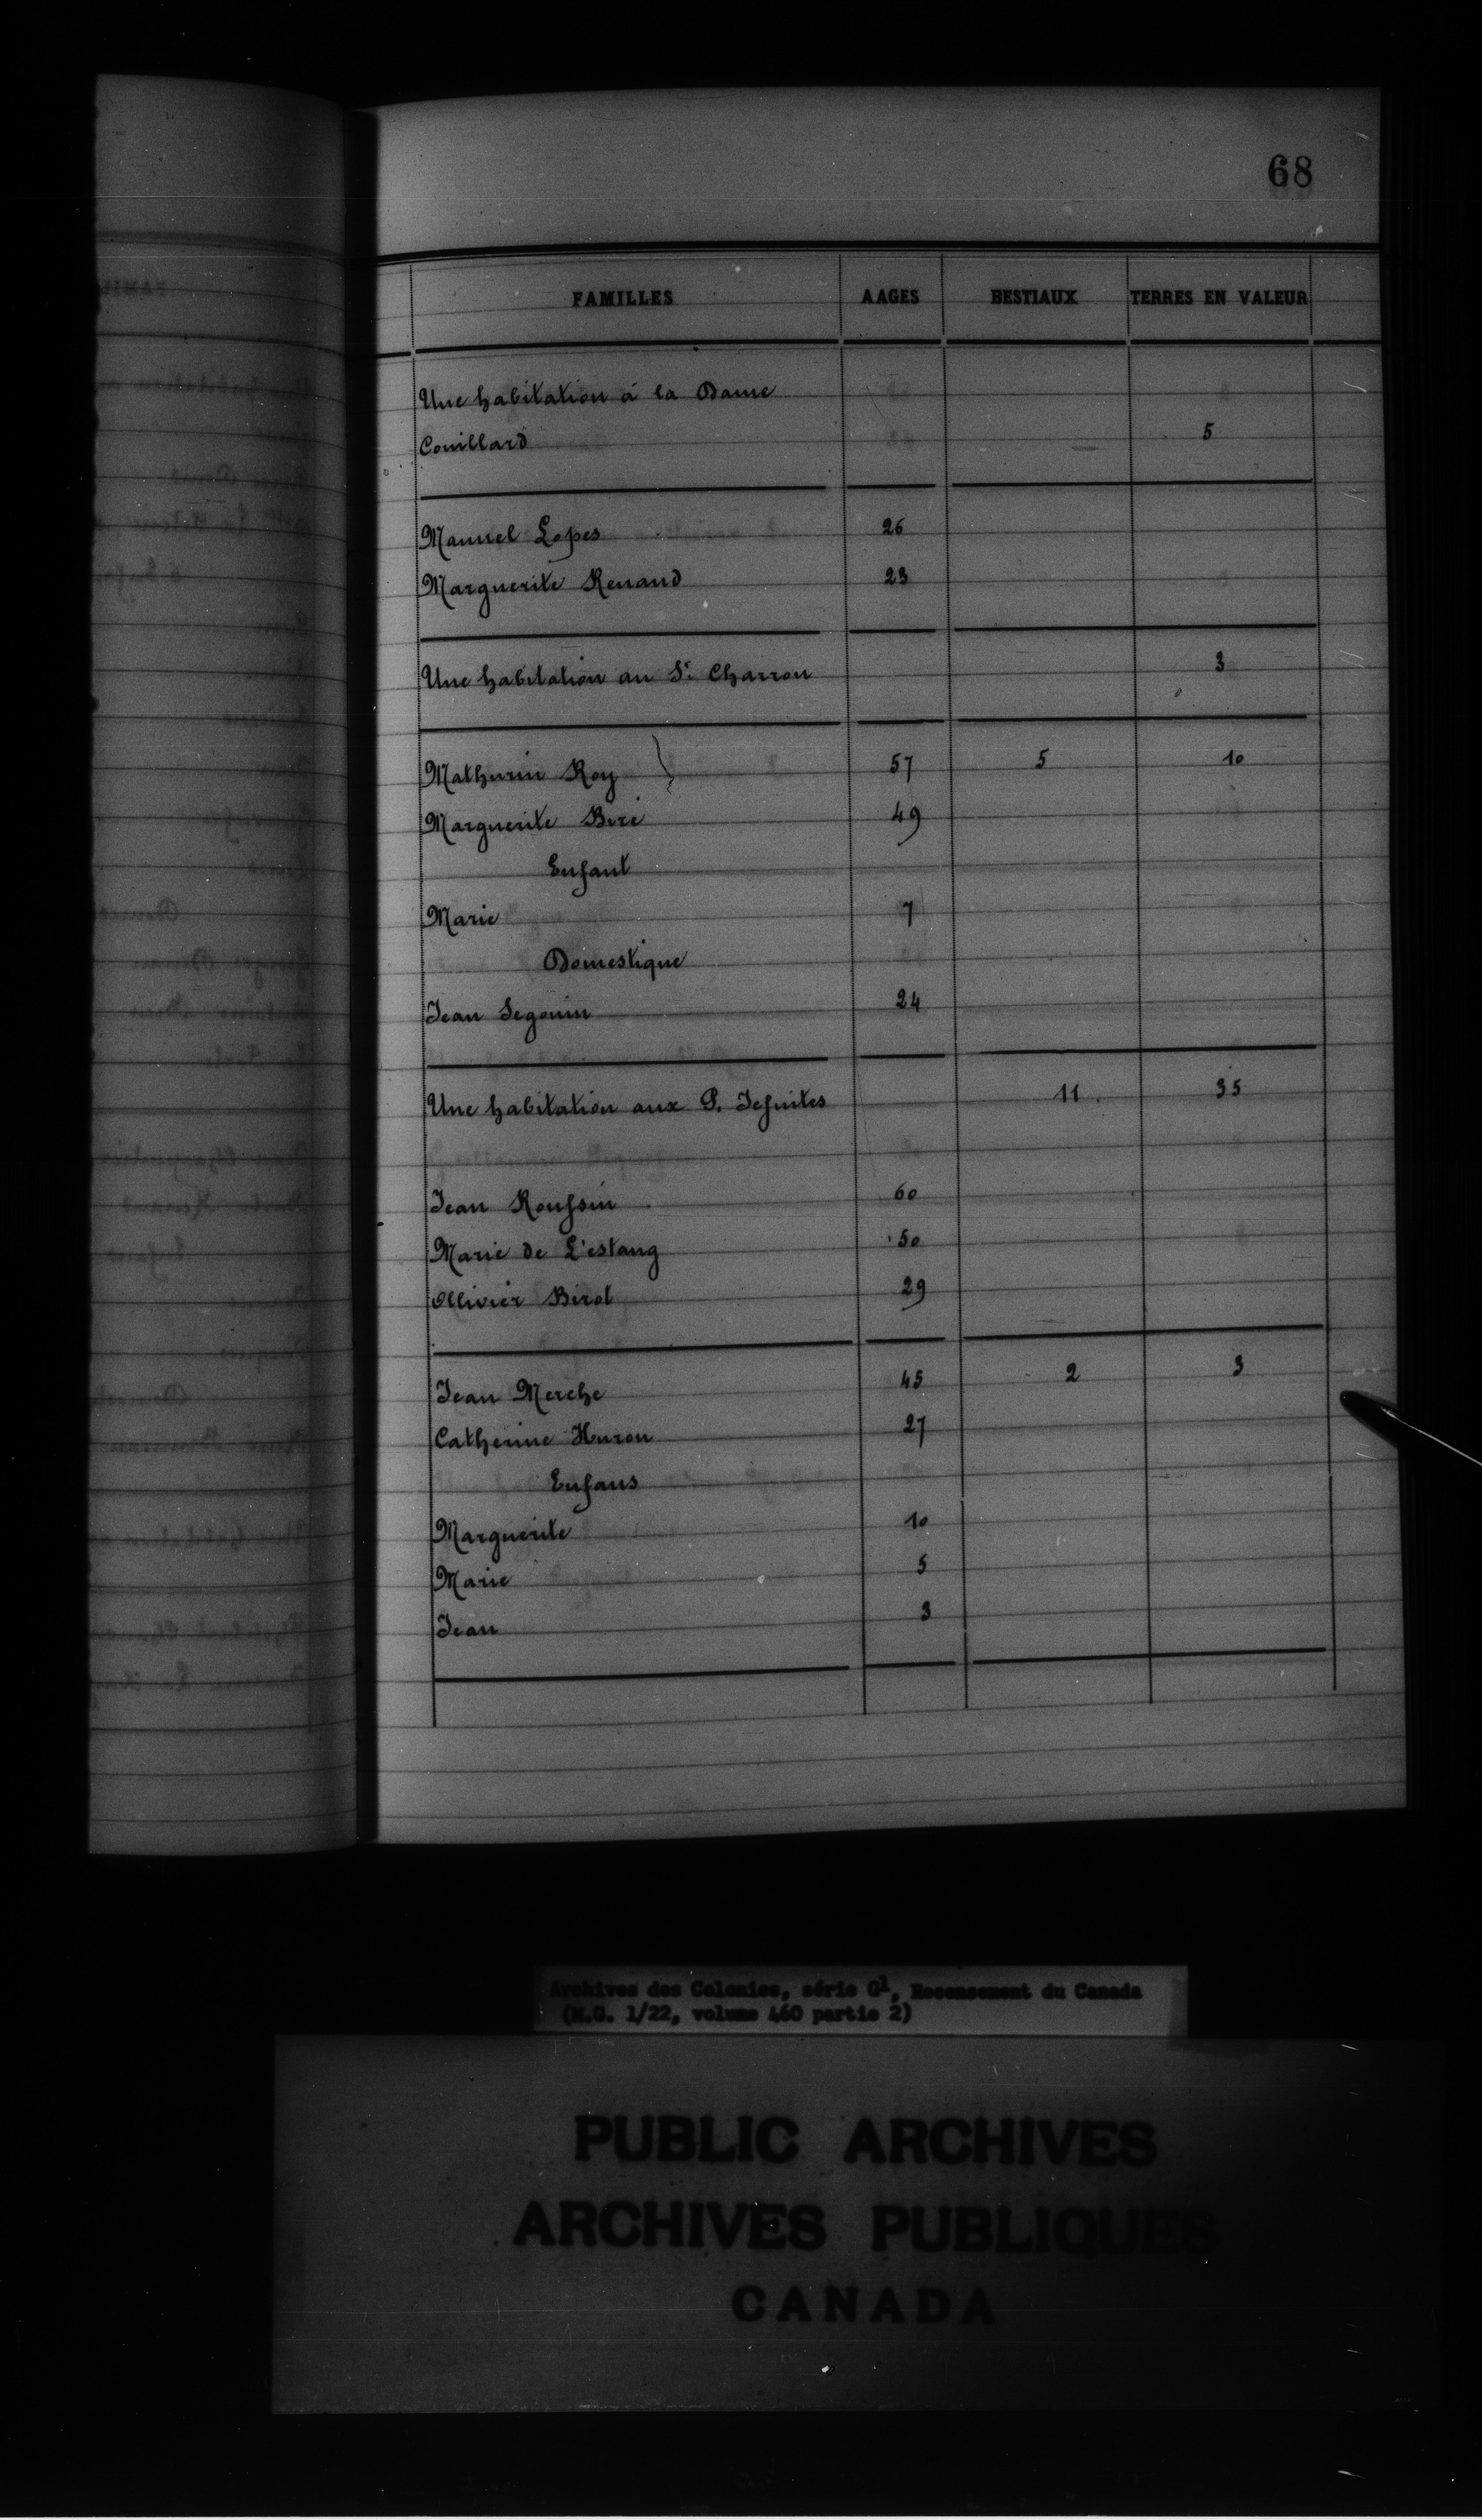 68
FAMILLES AAGES BESTIAUX TERRES EN VALEUR
Une habitation à la Dame
Couillard 5
Manuel Lopes 26
Marguerite Renaud 23
Une habitation au Sr. Charron 3
Mathurin Roy 57 5 10
Marguerite Biré 49
Enfant
Marie 7
Domestique
Jean Segouin 24
Une habitation aux P. Jesuites 11 35
Jean Roussin 60
Marie de L'estang 50
Ollivier Birol 29
Jean Merche 45 2 3
Catherine Huron 27
Enfans
Marguerite 10
Marie 5
Jean 3
Archives des Colonies, série G1, Recensement du Canada
(M.G. 1/22, volume 460 partie 2)
PUBLIC ARCHIVES
ARCHIVES PUBLIQUES
CANADA